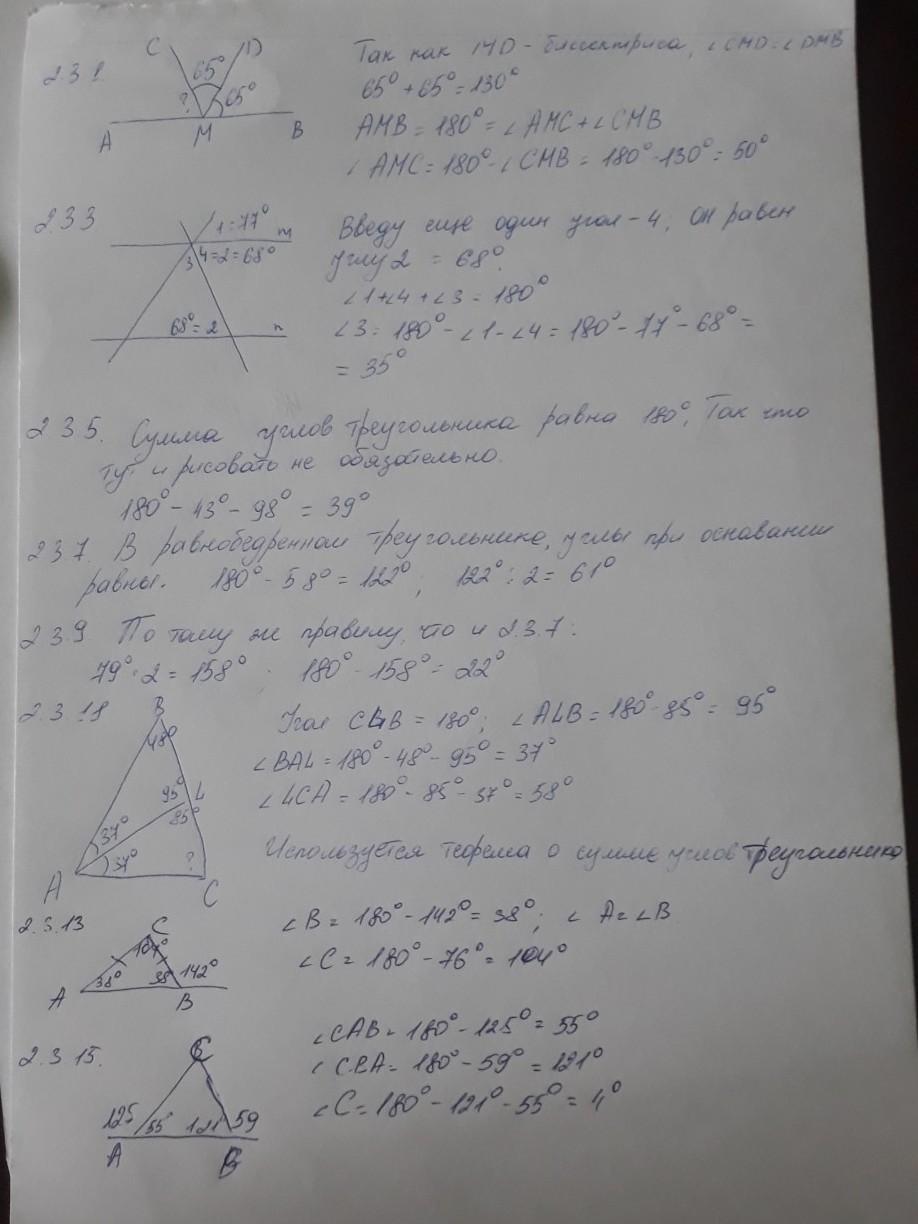 2.3.1.
C D
65°
? 65°
A M B
Так как MD - биссектриса, ∠CMD = ∠DMB
65° + 65° = 130°
AMB = 180° = ∠AMC + ∠CMB
∠AMC = 180° - ∠CMB = 180° - 130° = 50°
2.3.3
1 = 77° m
3 4=2=68°
68° = 2 n
Введу еще один угол - 4, он равен
углу 2 = 68°.
∠1+∠4 + ∠3 = 180°
∠3 = 180° - ∠1 - ∠4 = 180° - 77° - 68° =
= 35°
2.3.5. Сумма углов треугольника равна 180°. Так что
тут и рисовать не обязательно.
180° - 43° - 98° = 39°
2.3.7. В равнобедренном треугольнике, углы при основании
равны. 180° - 58° = 122°; 122° : 2 = 61°
2.3.9. По тому же правилу, что и 2.3.7:
79° · 2 = 158° 180° - 158° = 22°
2.3.
B
48°
95° L
85°
37°
37° ?
A C
Угол CLB = 180°; ∠ALB = 180° - 85° = 95°
∠BAL = 180° - 48° - 95° = 37°
∠LCA = 180° - 85° - 37° = 58°
Используется теорема о сумме углов треугольника
2.3.13
C
104°
38° 38 142°
A B
∠B = 180° - 142° = 38°; ∠A = ∠B
∠C = 180° - 76° = 104°
2.3.15.
C
125 55° 121° 59
A B
∠CAB = 180° - 125° = 55°
∠CBA = 180° - 59° = 121°
∠C = 180° - 121° - 55° = 4°